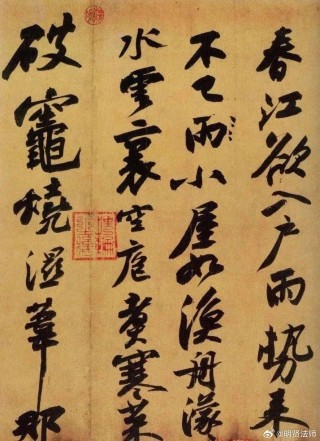 春江欲入户雨勢来
不已雨小屋如漁舟濛
水雲裏空庖煮寒菜
破竈燒濕葦那
@明贤法师